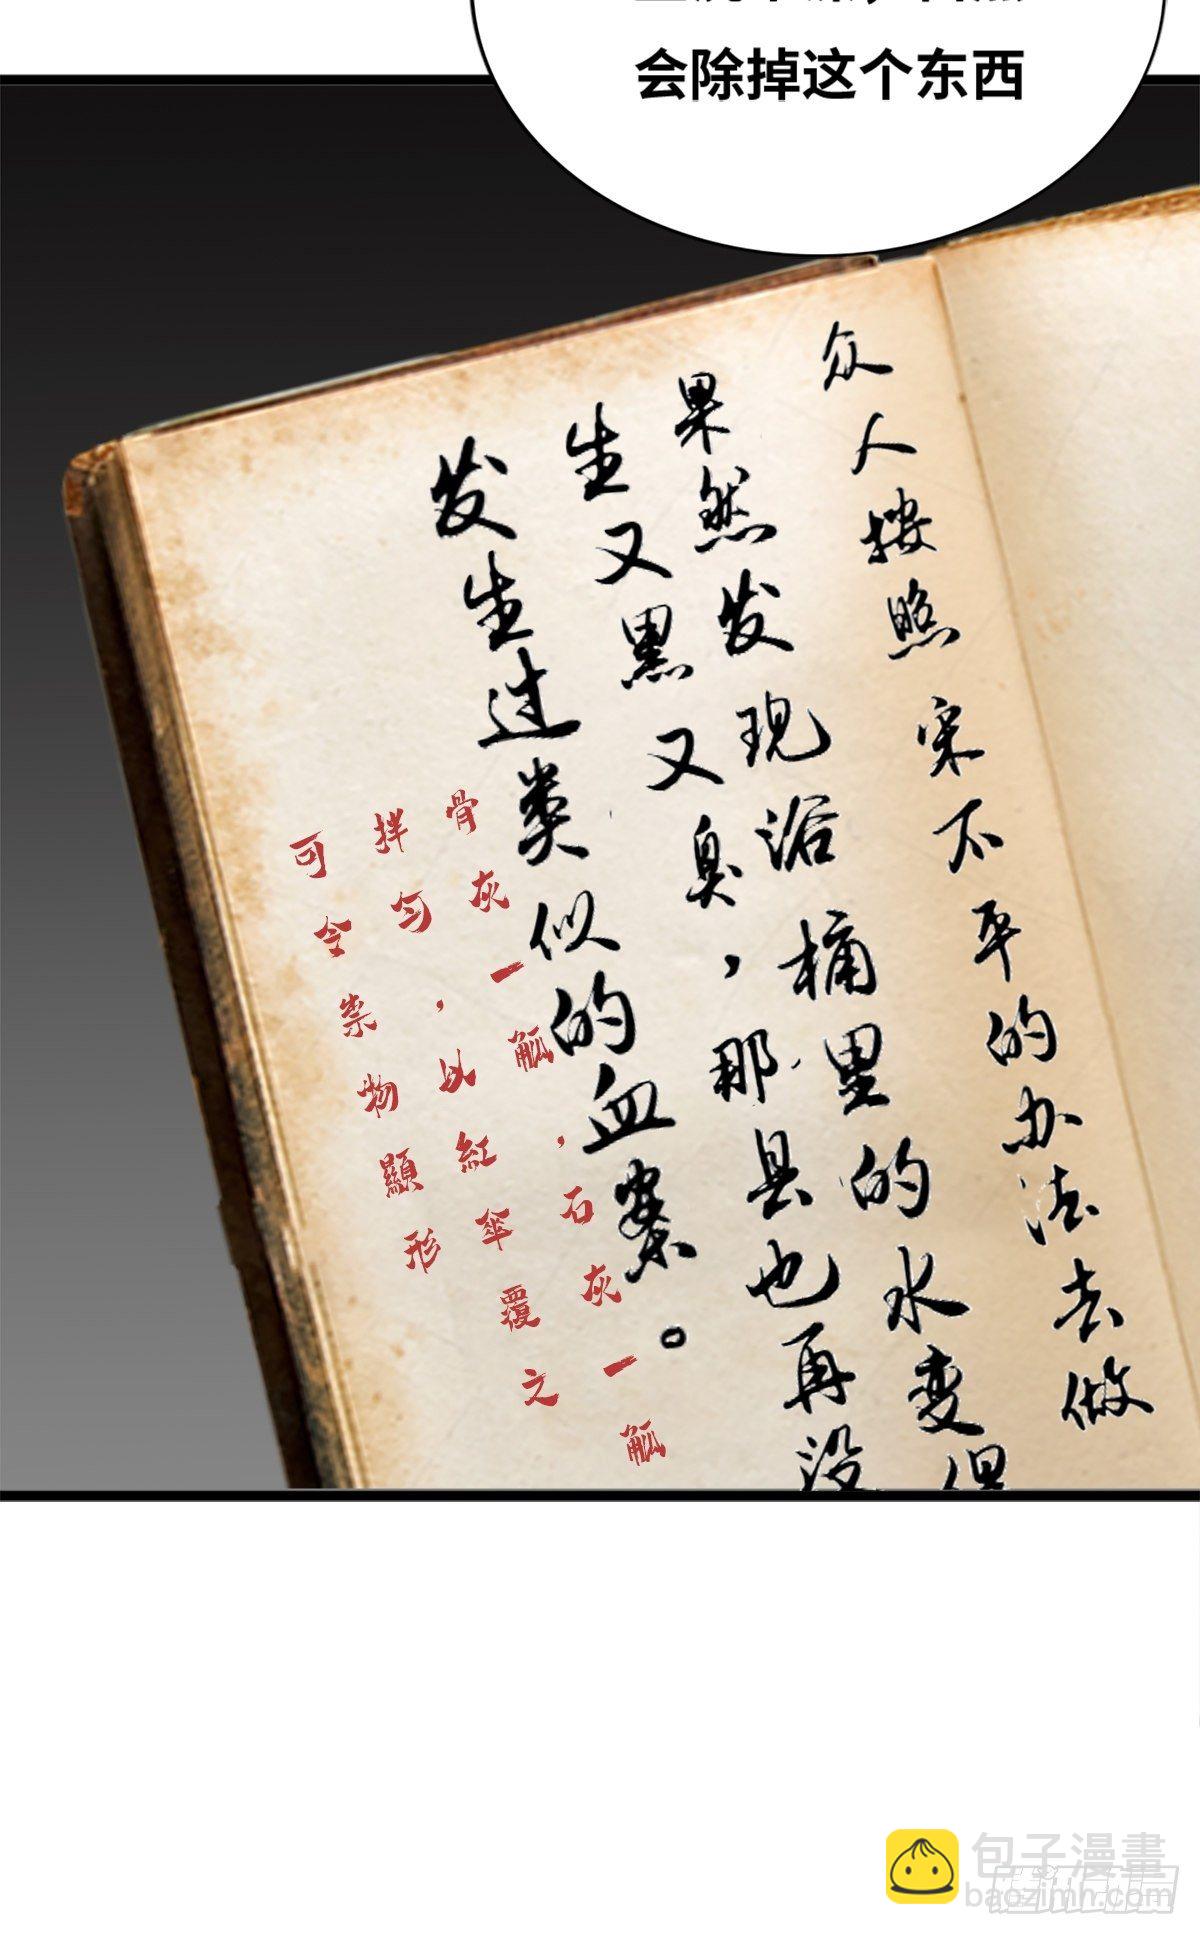 会除掉这个东西
众人按照宋不平的办法去做
果然发现浴桶里的水变得
生又黑又臭，那县也再没
发生过类似的血案。
骨灰一觚，石灰一觚
拌匀，以紅傘覆之
可令祟物顯形
包子漫畫
baozimh.com